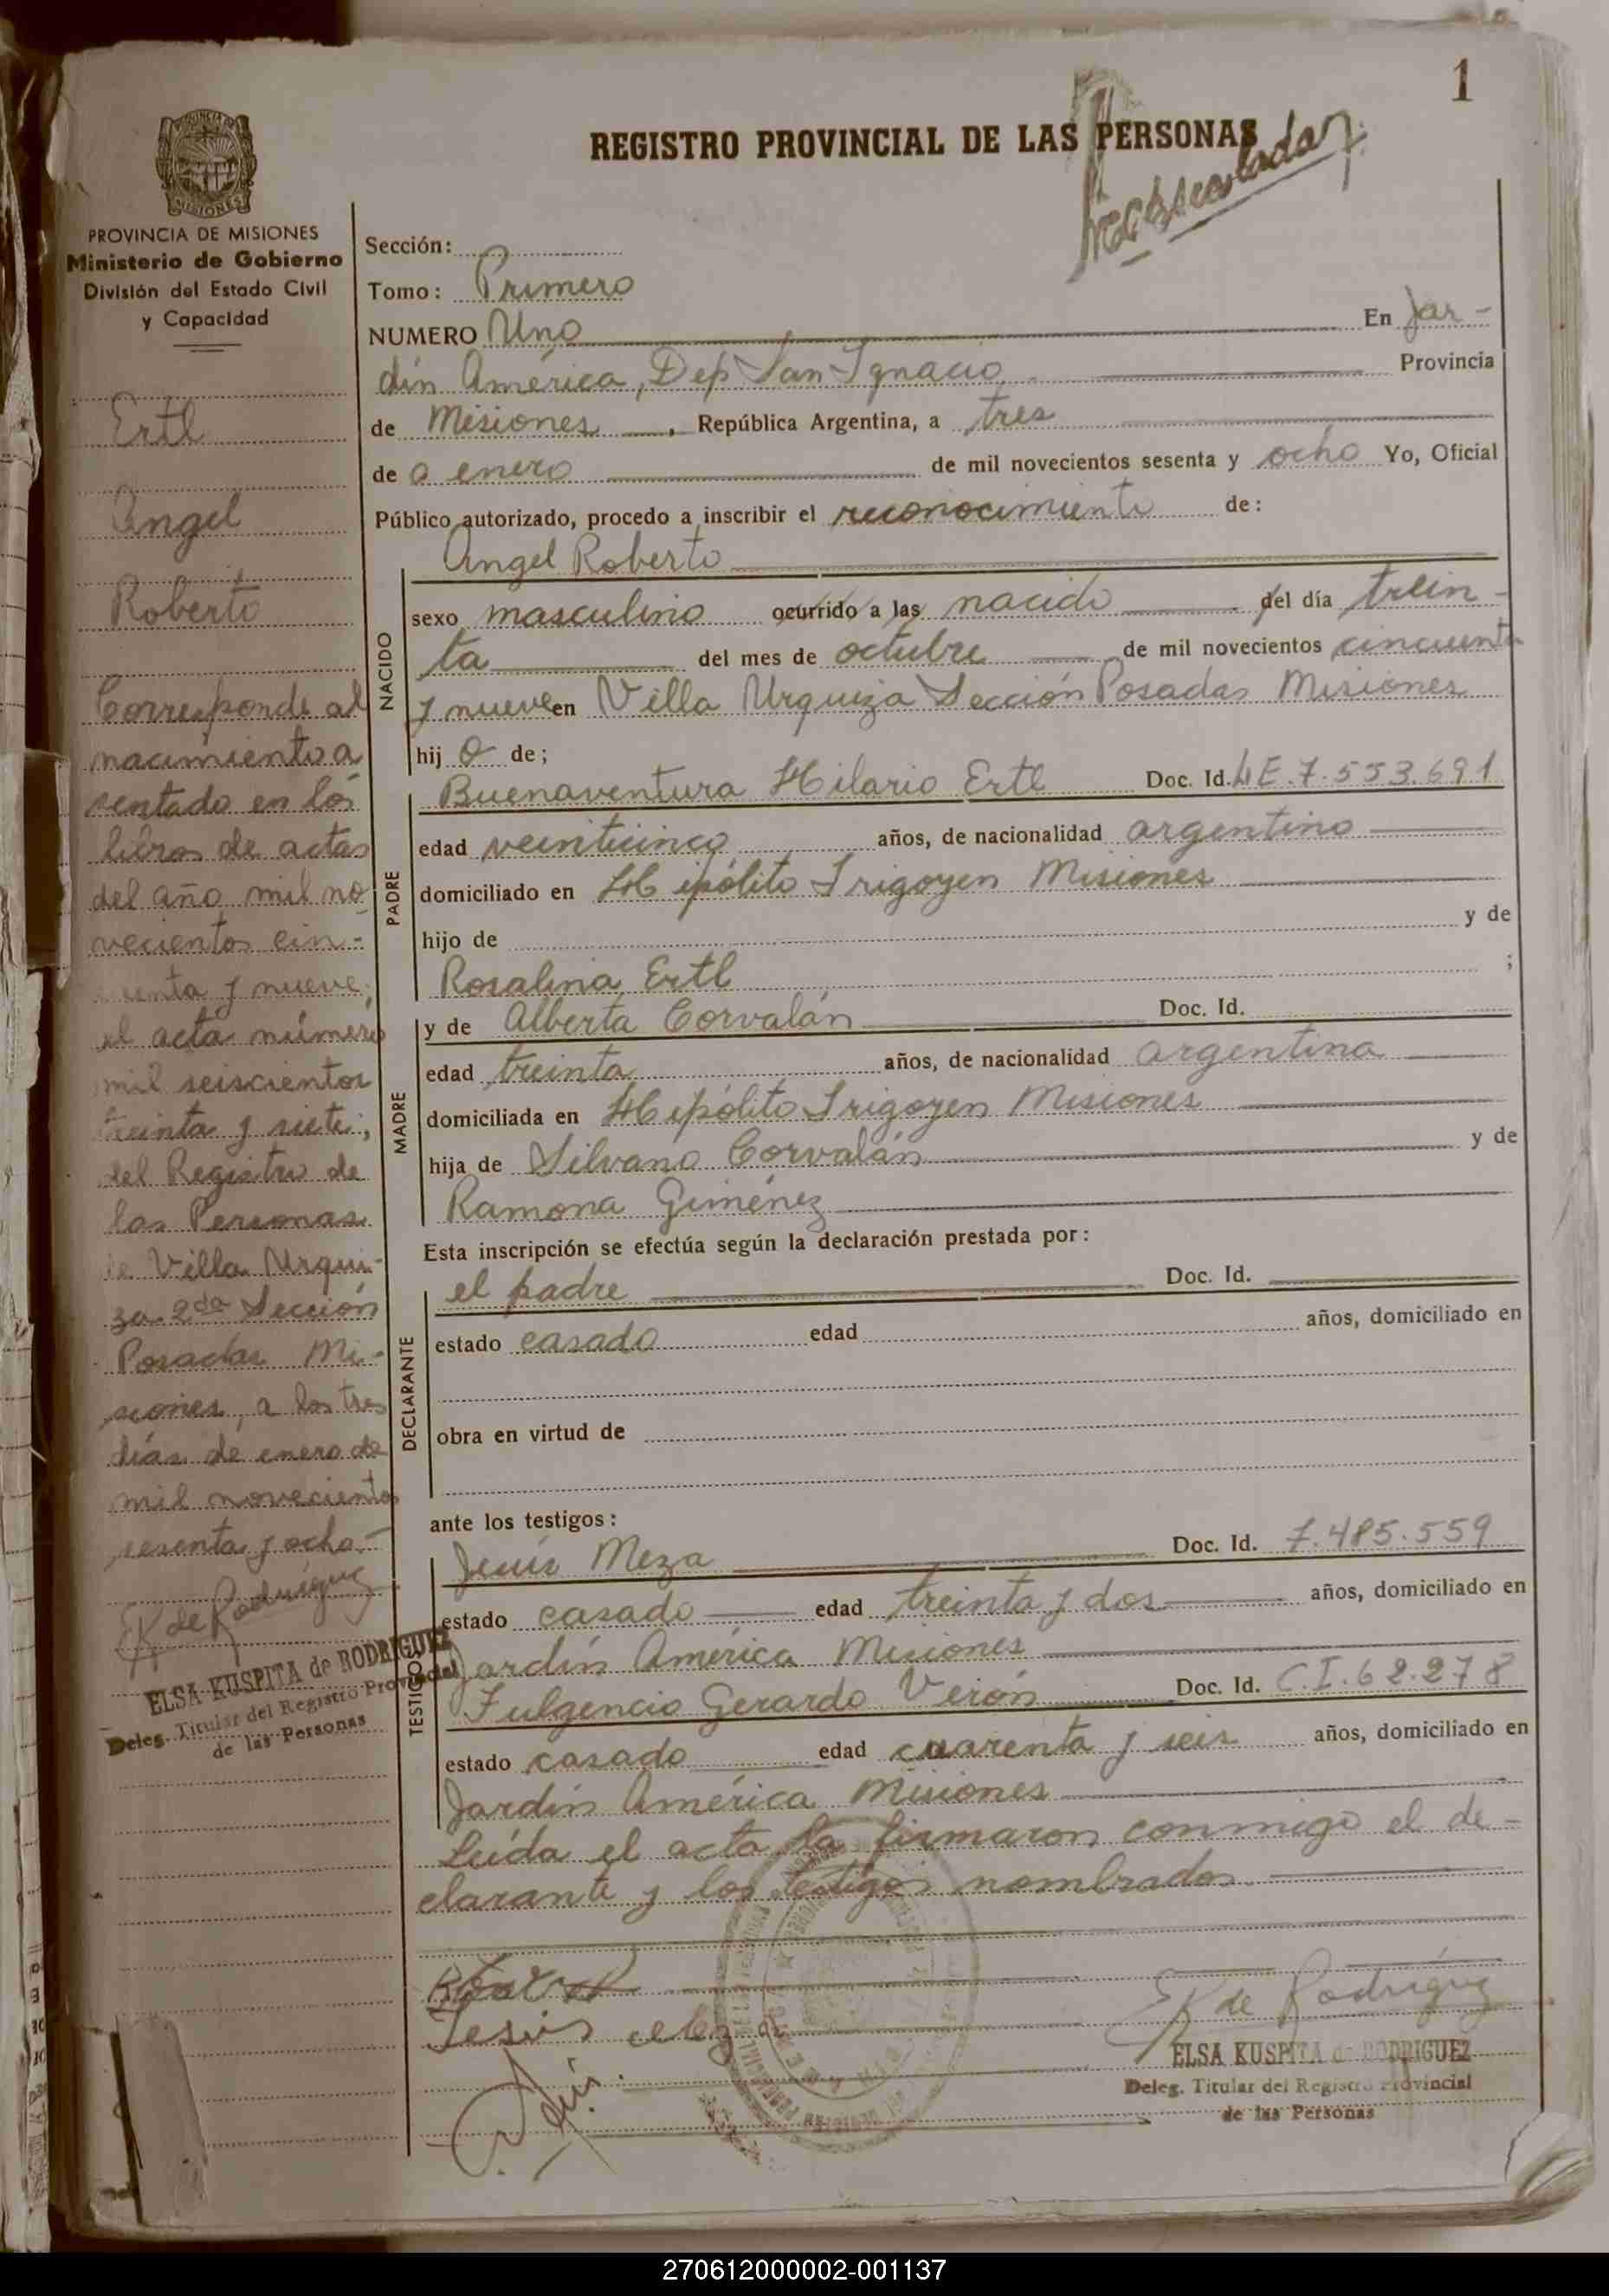 1
REGISTRO PROVINCIAL DE LAS PERSONAS
PROVINCIA DE MISIONES
Ministerio de Gobierno
División del Estado Civil
y Capacidad
Ertl
Angel
Roberto
Corresponde al
nacimiento a
sentado en los
libros de actas
del año mil no
vecientos cin-
cuenta y nueve,
el acta número
mil seiscientos
treinta y siete,
del Registro de
las Personas
de Villa Urqui-
za 2da Sección
Posadas Mi-
siones, a los tres
días de enero de
mil novecientos
sesenta y ocho.-
EK de Rodríguez
ELSA KUSPITA de RODRIGUEZ
Deleg. Titular del Registro Provincial
de las Personas
Sección:
Tomo: Primero
NUMERO Uno En Jar-
dín América, Dep San Ignacio Provincia
de Misiones, República Argentina, a tres
de a enero de mil novecientos sesenta y ocho Yo, Oficial
Público autorizado, procedo a inscribir el reconocimiento de:
Angel Roberto
NACIDO
sexo masculino ocurrido a las nacido del día trein-
ta del mes de octubre de mil novecientos cincuenta
y nueve en Villa Urquiza Sección Posadas Misiones
hijo de;
PADRE
Buenaventura Hilario Ertl Doc. Id. LE.7.553.691
edad veinticinco años, de nacionalidad argentino
domiciliado en Hipólito Irigoyen Misiones
hijo de y de
Rosalina Ertl ;
MADRE
y de Alberta Corvalán Doc. Id.
edad treinta años, de nacionalidad argentina
domiciliada en Hipólito Irigoyen Misiones
hija de Silvano Corvalán y de
Ramona Giménez
Esta inscripción se efectúa según la declaración prestada por:
DECLARANTE
el padre Doc. Id.
estado casado edad años, domiciliado en
obra en virtud de
ante los testigos:
TESTIGOS
Jesús Meza Doc. Id. 7.485.559
estado casado edad treinta y dos años, domiciliado en
Jardín América Misiones
Fulgencio Gerardo Verón Doc. Id. C.I.62.278
estado casado edad cuarenta y seis años, domiciliado en
Jardín América Misiones
Leída el acta la firmaron conmigo el de-
clarante y los testigos nombrados.
Jesús Meza
EK de Rodríguez
ELSA KUSPITA de RODRIGUEZ
Deleg. Titular del Registro Provincial
de las Personas
270612000002-001137